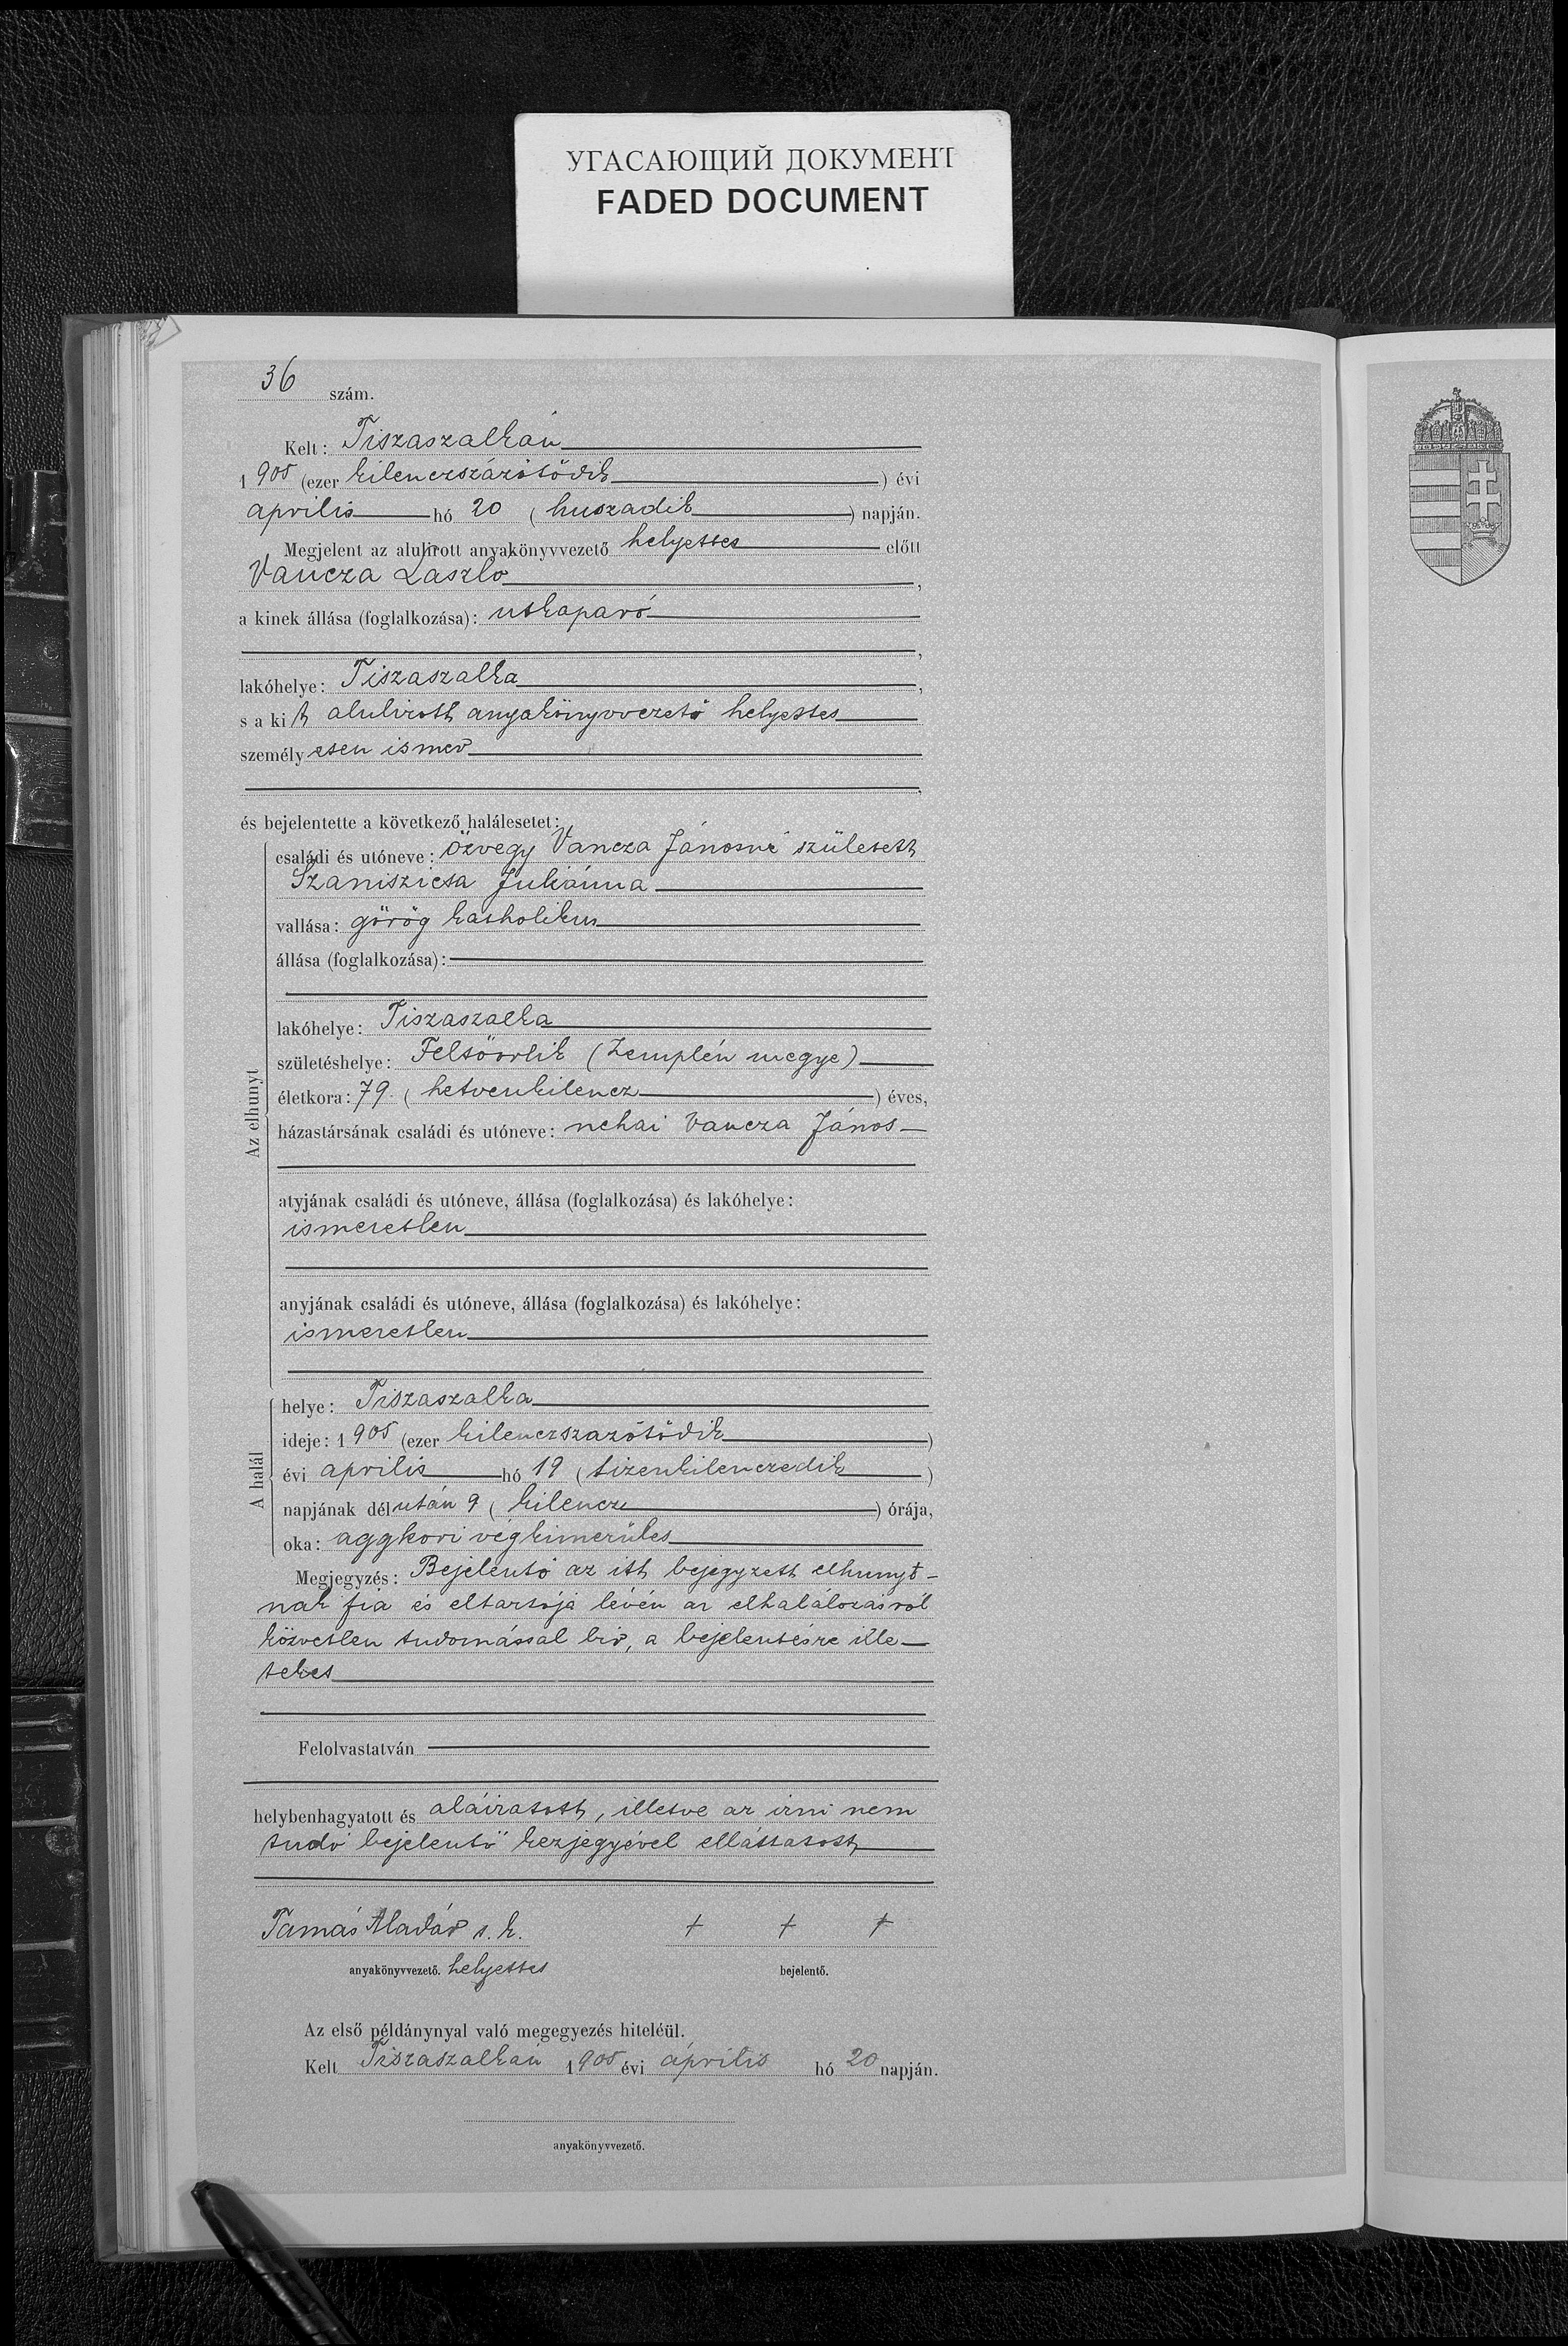 УГАСАЮЩИЙ ДОКУМЕНТ
FADED DOCUMENT
36 szám.
Kelt: Tiszaszalkán
1905 (ezer kilenczszázötödik) évi
április hó 20 (huszadik) napján.
Megjelent az alulirott anyakönyvvezető helyettes előtt
Vancza László,
a kinek állása (foglalkozása): utkaparó
,
lakóhelye: Tiszaszalka,
s a kit alulirott anyakönyvvezető helyettes
személyesen ismer
,
és bejelentette a következő halálesetet:
családi és utóneve: özvegy Vancza Jánosné született
Szaniszicsa Juliánna
vallása: görög katholikus
állása (foglalkozása):
lakóhelye: Tiszaszalka
születéshelye: Felsőorlik (Zemplén megye)
életkora: 79 (hetvenkilencz) éves,
házastársának családi és utóneve: néhai Vancza János
atyjának családi és utóneve, állása (foglalkozása) és lakóhelye:
ismeretlen
anyjának családi és utóneve, állása (foglalkozása) és lakóhelye:
ismeretlen
Az elhunyt
helye: Tiszaszalka
ideje: 1905 (ezer kilenczszazötödik)
évi április hó 19 (tizenkilenczedik)
napjának délután 9 (kilencz) órája,
oka: aggkori végkimerülés
A halál
Megjegyzés: Bejelentő az itt bejegyzett elhunyt-
nak fia és eltartója lévén az elhalálozásról
közvetlen tudomással bir, a bejelentésre ille-
tékes
Felolvastatván
helybenhagyatott és aláiratott, illetve az irni nem
tudó bejelentő kézjegyével elláttatott
Tamás Aladár s. k. + + +
anyakönyvvezető. helyettes bejelentő.
Az első példánynyal való megegyezés hiteléül.
Kelt Tiszaszalkán 1905 évi április hó 20 napján.
anyakönyvvezető.